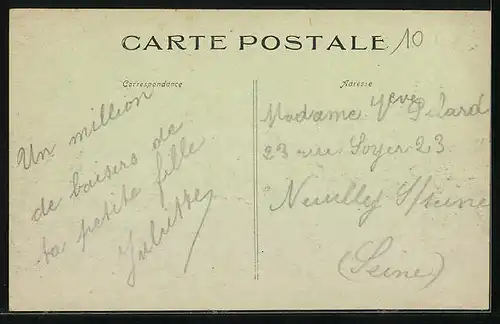 CARTE POSTALE
10
Correspondance
Un million
de baisers de
ta petite fille
Juliette
Adresse
Madame Veuve Pilard
23 rue Soyer 23
Neuilly s/seine
(Seine)